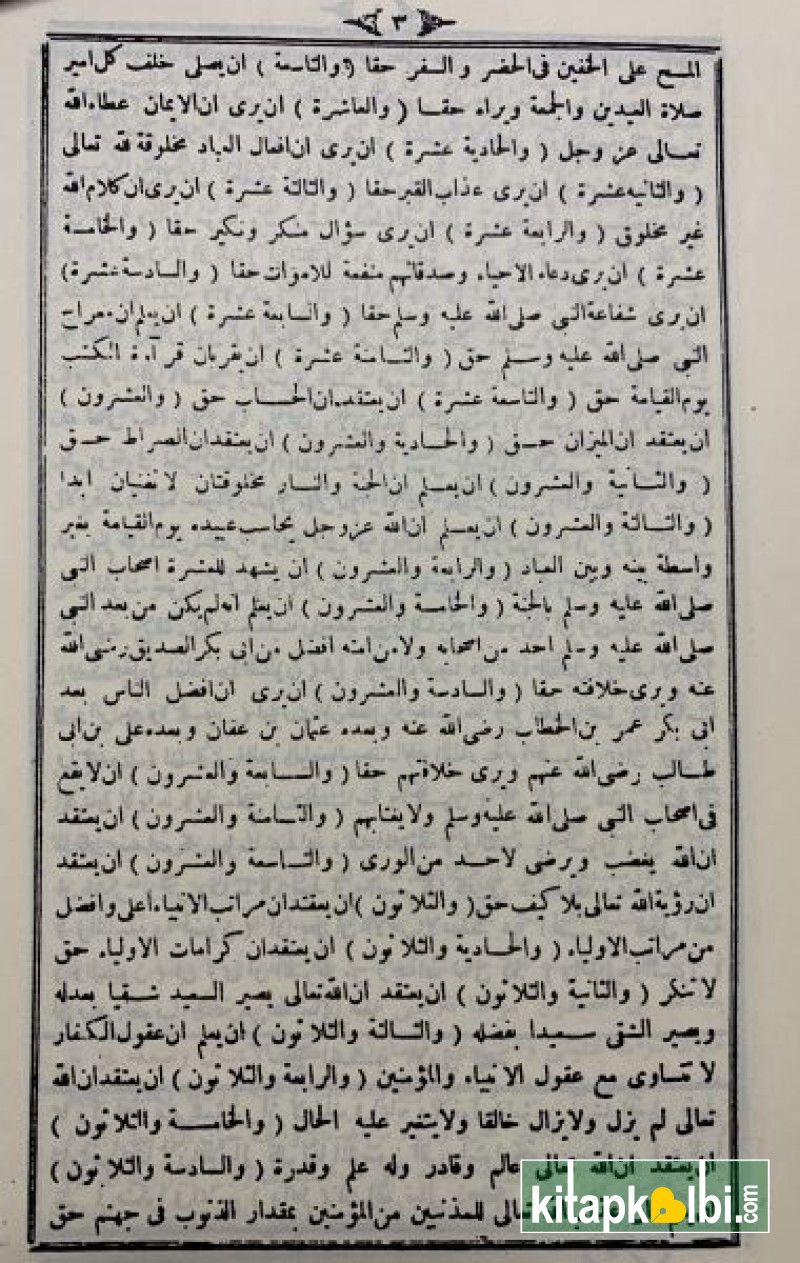 ٣
المسح على الخفين فى الحضر والسفر حقا (والتاسعة) ان يصلى خلف كل امير
صلاة العيدين والجمعة ويراه حقا (والعاشرة) ان يرى ان الايمان عطاء الله
تعالى عز وجل (والحادية عشرة) ان يرى ان افعال العباد مخلوقة لله تعالى
(والثانيه عشرة) ان يرى عذاب القبر حقا (والثالثة عشرة) ان يرى ان كلام الله
غير مخلوق (والرابعة عشرة) ان يرى سؤال منكر ونكير حقا (والخامسة
عشرة) ان يرى دعاء الاحياء وصدقاتهم منفعة للاموات حقا (والسادسة عشرة)
ان يرى شفاعة النبى صلى الله عليه وسلم حقا (والسابعة عشرة) ان يعلم ان معراج
النبى صلى الله عليه وسلم حق (والثامنة عشرة) ان يقر بان قرآءة الكتب
يوم القيامة حق (والتاسعة عشرة) ان يعتقد ان الحساب حق (والعشرون)
ان يعتقد ان الميزان حق (والحادية والعشرون) ان يعتقد ان الصراط حق
(والثانية والعشرون) ان يعلم ان الجنة والنار مخلوقتان لا تفنيان ابدا
(والثالثة والعشرون) ان يعلم ان الله عز وجل يحاسب عبيده يوم القيامة بغير
واسطة بينه وبين العباد (والرابعة والعشرون) ان يشهد للعشرة اصحاب النبى
صلى الله عليه وسلم بالجنة (والخامسة والعشرون) ان يعلم انه لم يكن من بعد النبى
صلى الله عليه وسلم احد من اصحابه ولا من امته افضل من ابى بكر الصديق رضى الله
عنه ويرى خلافته حقا (والسادسة والعشرون) ان يرى ان افضل الناس بعد
ابى بكر عمر بن الخطاب رضى الله عنه وبعده عثمان بن عفان وبعده على بن ابى
طالب رضى الله عنهم ويرى خلافتهم حقا (والسابعة والعشرون) ان لا يقع
فى اصحاب النبى صلى الله عليه وسلم ولا يغتابهم (والثامنة والعشرون) ان يعتقد
ان الله يغضب ويرضى لا حد من الورى (والتاسعة والعشرون) ان يعتقد
ان رؤية الله تعالى بلا كيف حق (والثلاثون) ان يعتقد ان مراتب الانبياء اعلى وافضل
من مراتب الاولياء (والحادية والثلاثون) ان يعتقد ان كرامات الاولياء حق
لا تنكر (والثانية والثلاثون) ان يعتقد ان الله تعالى يصير السعيد شقيا بعدله
ويصير الشقى سعيدا بفضله (والثالثة والثلاثون) ان يعلم ان عقول الكفار
لا تتساوى مع عقول الانبياء والمؤمنين (والرابعة والثلاثون) ان يعتقد ان الله
تعالى لم يزل ولا يزال خالقا ولا يتغير عليه الحال (والخامسة والثلاثون)
ان يعتقد ان الله تعالى عالم وقادر وله علم وقدرة (والسادسة والثلاثون)
تعالى للمذنبين من المؤمنين بمقدار الذنوب فى جهنم حق
kitapkalbi.com